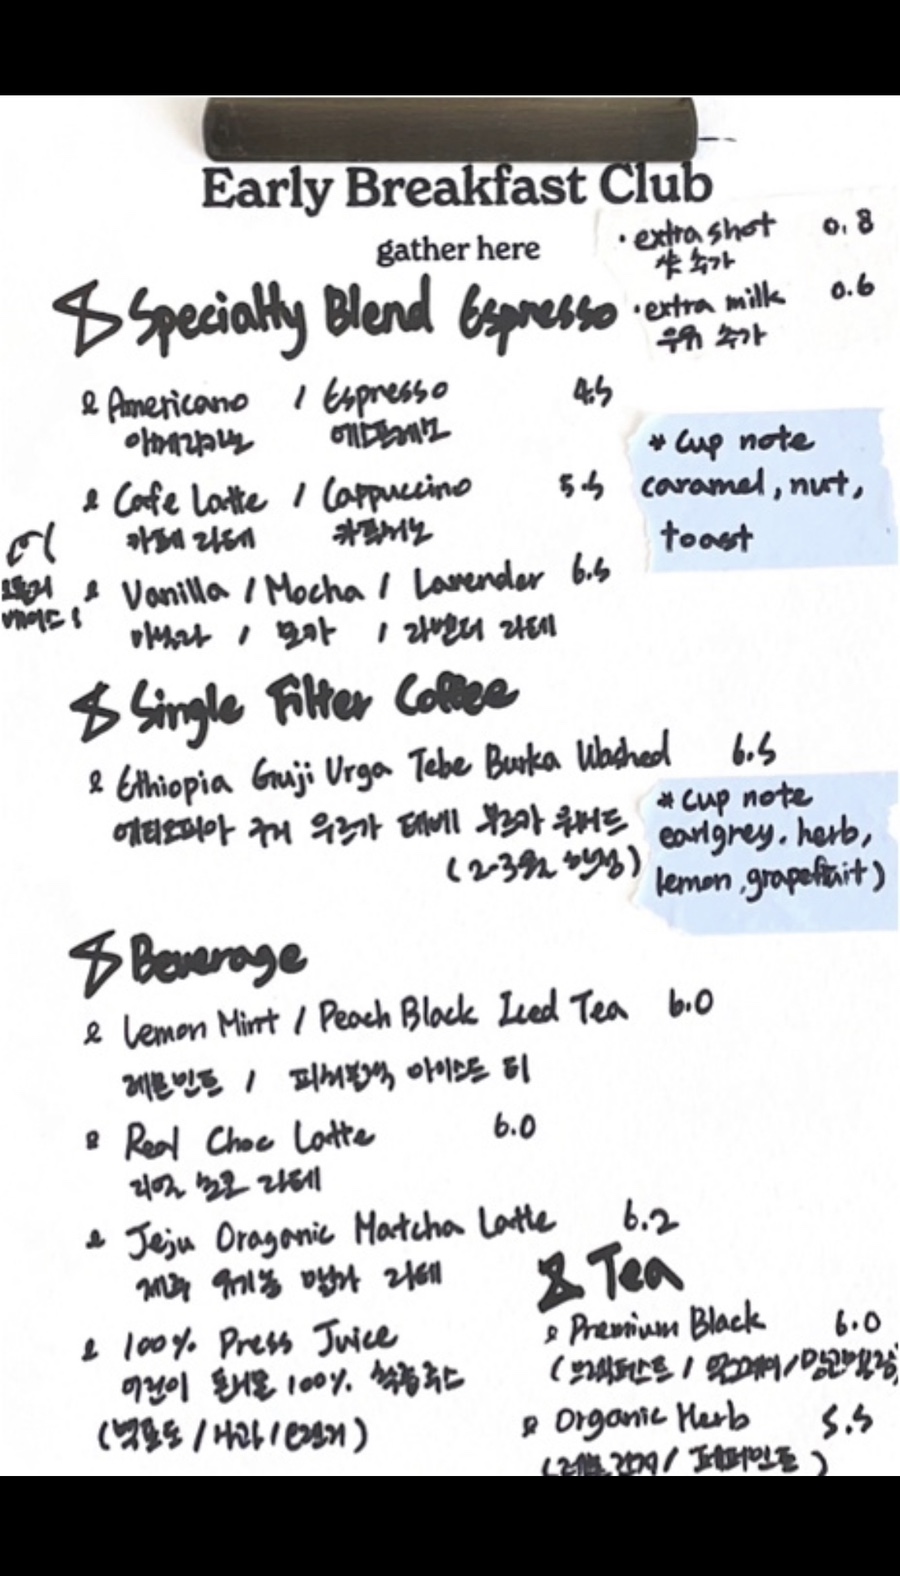 Early Breakfast Club
gather here
· extra shot 0.8
샷 추가
· extra milk 0.6
우유 추가
Specialty Blend Espresso
Americano / Espresso 4.5
아메리카노 에스프레소
Cafe Latte / Cappuccino 5.5
카페 라떼 카푸치노
* Cup note
caramel, nut,
toast
오틀리
베이스!
Vanilla / Mocha / Lavender 6.5
바닐라 / 모카 / 라벤더 라떼
Single Filter Coffee
Ethiopia Guji Urga Tebe Burka Washed 6.5
에티오피아 구지 우르가 테베 부르카 워시드
* Cup note
earlgrey, herb,
lemon, grapefruit)
Beverage
Lemon Mint / Peach Black Iced Tea 6.0
레몬민트 / 피치블랙 아이스드 티
Real Choc Latte 6.0
리얼 초코 라떼
Jeju Oraganic Matcha Latte 6.2
제주 유기농 말차 라떼
100% Press Juice
돈시몬 100% 착즙주스
(청포도 / 사과 / 오렌지)
Tea
Premium Black 6.0
(브랙퍼스트 / 얼그레이 /
Organic Herb 5.5
(레몬진저 / 페퍼민트)